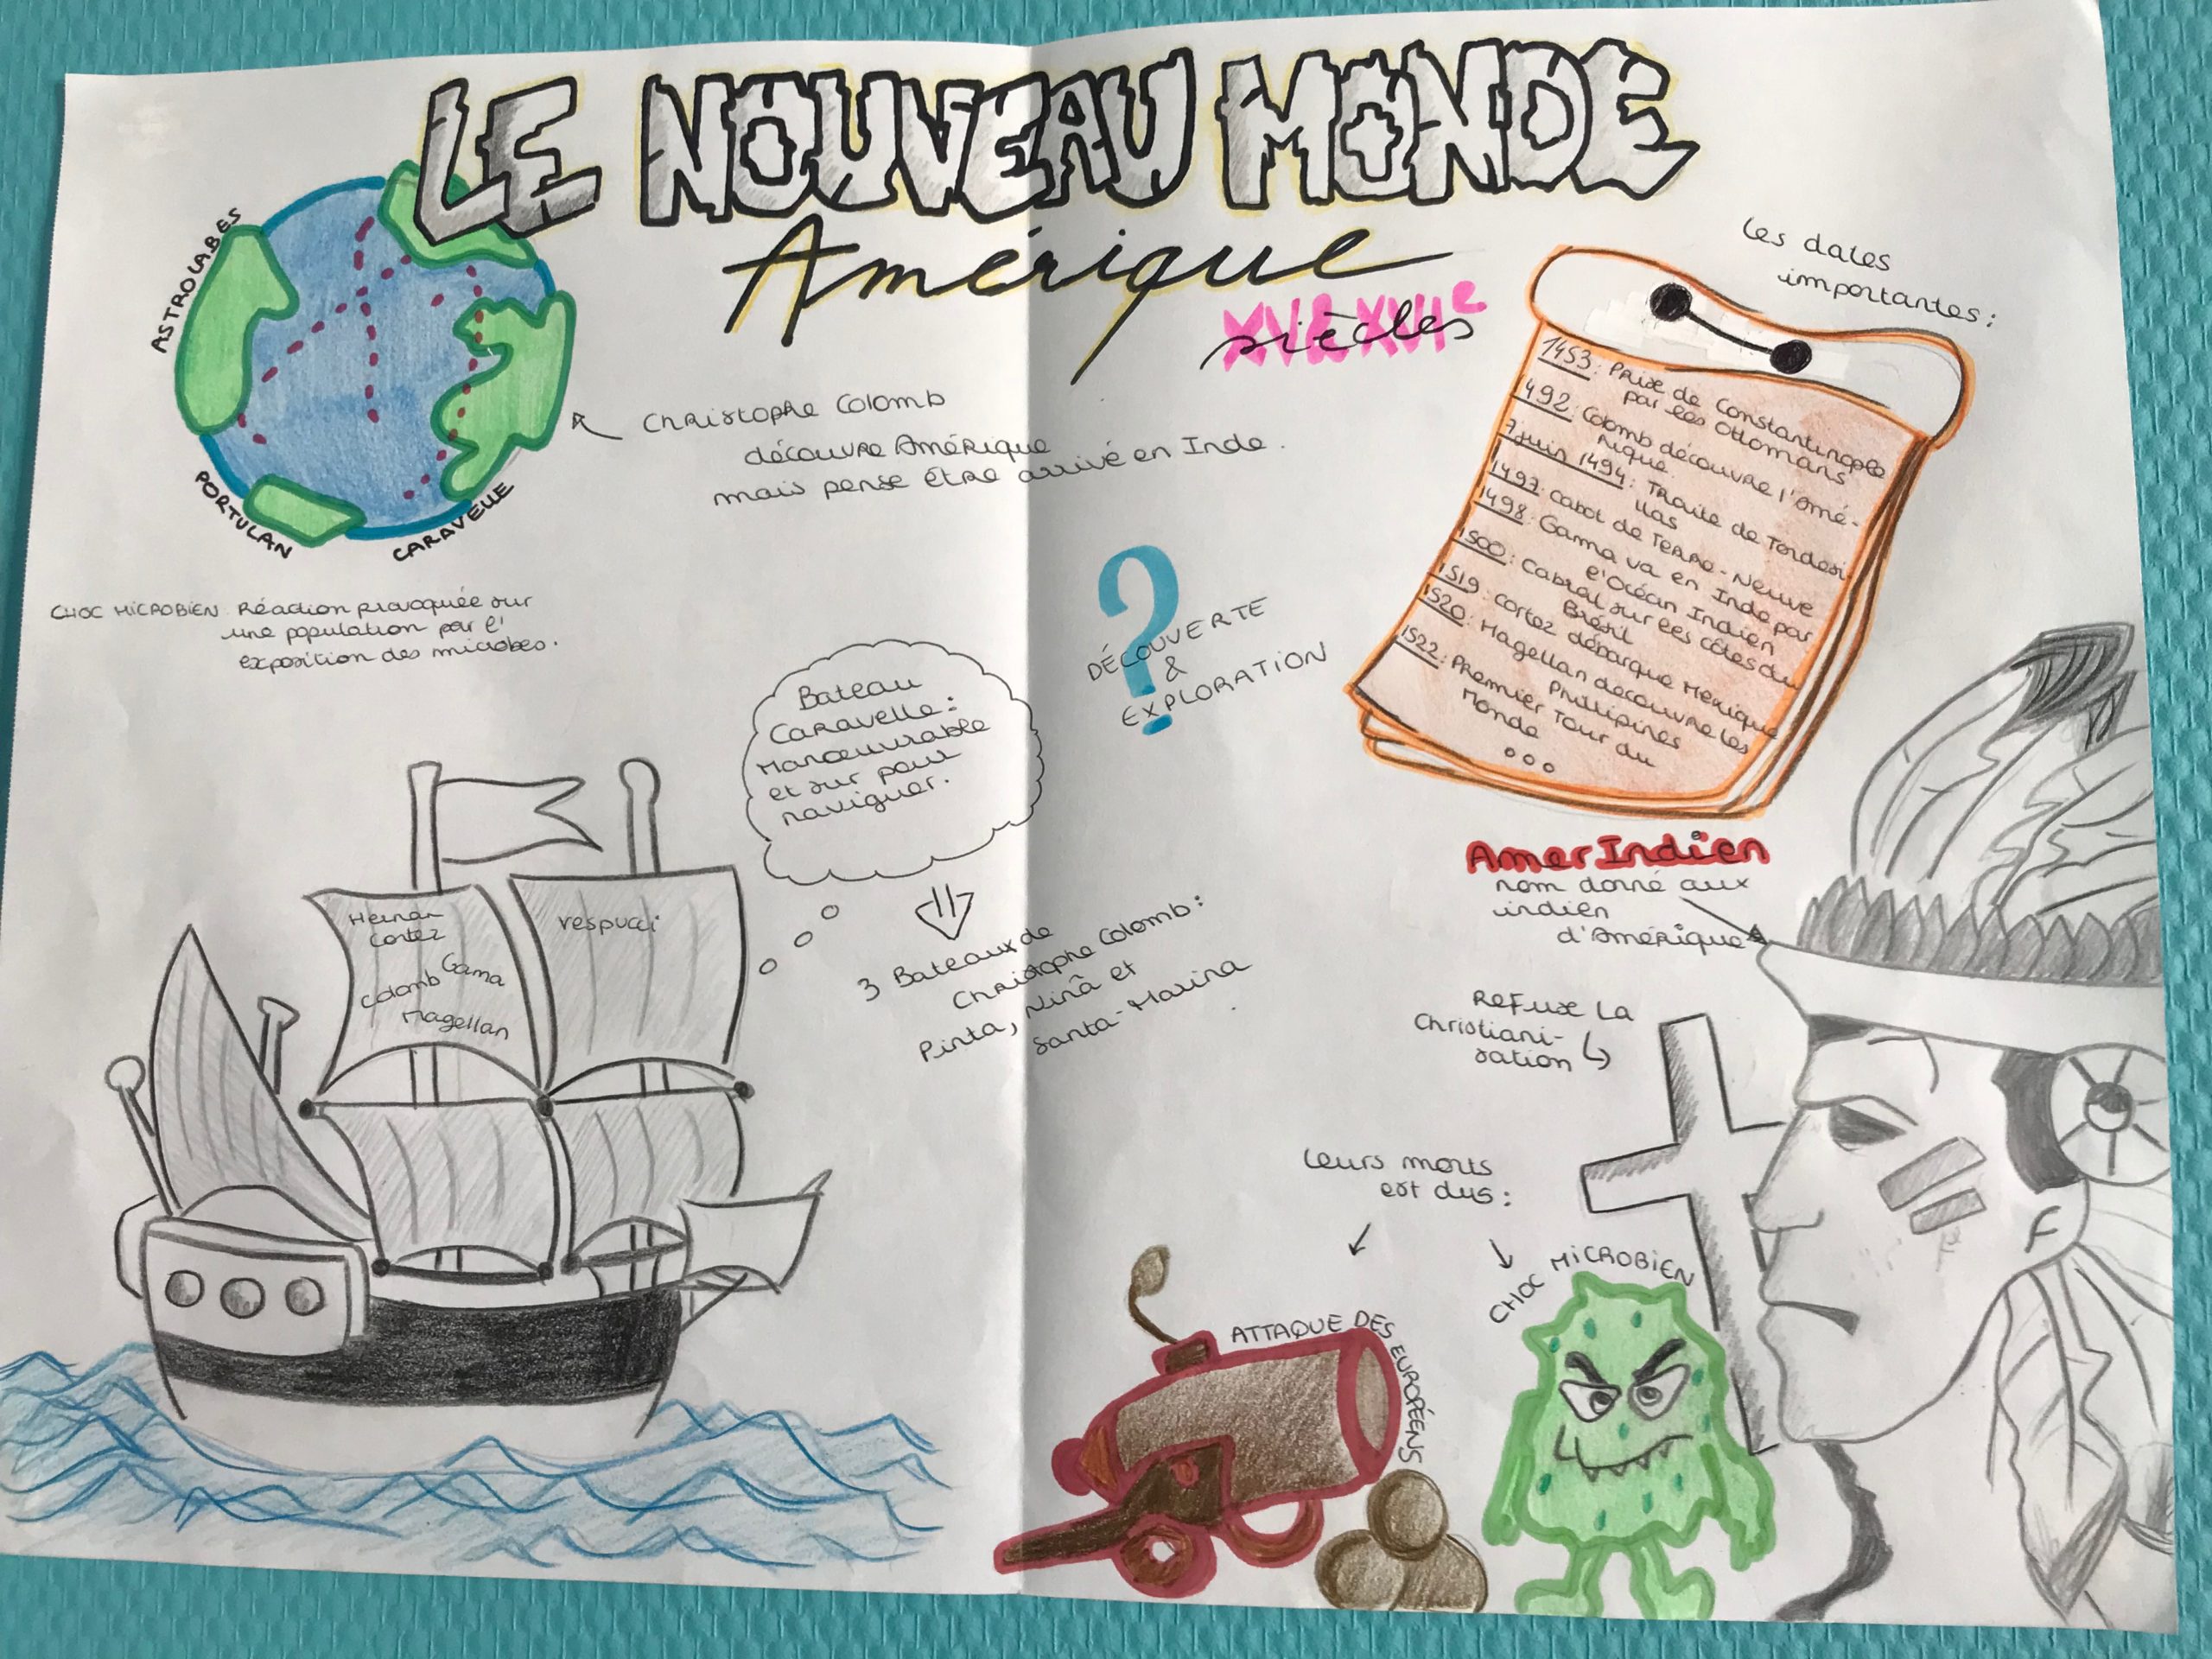 LE NOUVEAU MONDE
Amérique
XVI & XVIIe
siècles
Les dates
importantes :
1453 : Prise de Constantinople
par les Ottomans
1492 : Colomb découvre l'Amé-
rique
7 Juin 1494 : Traite de Tordesi-
llas
1497 : Cabot de Terre-Neuve
1498 : Gama va en Inde par
l'Océan Indien
1500 : Cabral sur les côtes du
Brésil
1519 : Cortez débarque Mexique
1520 : Magellan decouvre les
Phillipines
1522 : Premier Tour du
Monde
ASTROLABES
PORTULAN
CARAVELLE
Christophe Colomb
découvre Amérique
mais pense être arrivé en Inde.
CHOC MICROBIEN : Réaction provoquée sur
une population par l'
exposition des microbes.
?
DÉCOUVERTE
&
EXPLORATION
Bateau
Caravelle :
Manœuvrable
et sur pour
naviguer.
3 Bateaux de
Christophe Colomb :
Pinta, Ninã et
Santa-Marina
Hernan
Cortez
Colomb Gama
Magellan
Vespucci
AmerIndien
nom donné aux
indien
d'Amérique
Refuse La
Christiani-
sation
Leurs morts
est dus :
ATTAQUE DES EUROPÉENS
CHOC MICROBIEN